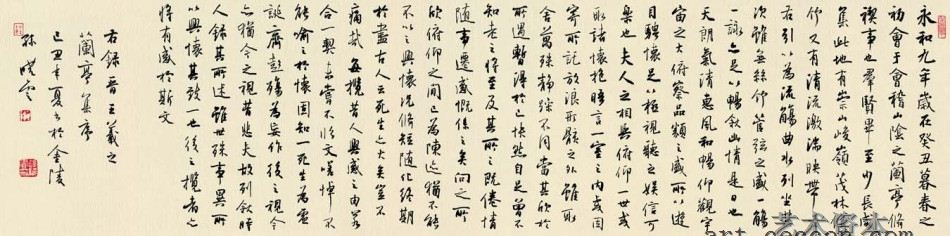 永和九年歲在癸丑暮春之
初會于會稽山陰之蘭亭脩
禊事也羣賢畢至少長咸
集此地有崇山峻嶺茂林脩
竹又有清流激湍映帶左
右引以為流觴曲水列坐其
次雖無絲竹管弦之盛一觴
一詠亦足以暢敘幽情是日也
天朗氣清惠風和暢仰觀宇
宙之大俯察品類之盛所以遊
目騁懷足以極視聽之娛信可
樂也夫人之相與俯仰一世或
取諸懷抱晤言一室之內或因
寄所託放浪形骸之外雖取
舍萬殊靜躁不同當其欣於
所遇暫得於己快然自足曾不
知老之將至及其所之既倦情
隨事遷感慨係之矣向之所
欣俯仰之間已為陳迹猶不能
不以之興懷況脩短隨化終期
於盡古人云死生亦大矣豈不
痛哉每攬昔人興感之由若
合一契未嘗不臨文嗟悼不
能喻之於懷固知一死生為虛
誕齊彭殤為妄作後之視今
亦猶今之視昔悲夫故列敘時
人錄其所述雖世殊事異所
以興懷其致一也後之攬者亦
將有感於斯文
右錄晉王羲之
蘭亭集序
己丑年夏書於金陵
孫曉雲
艺术资本